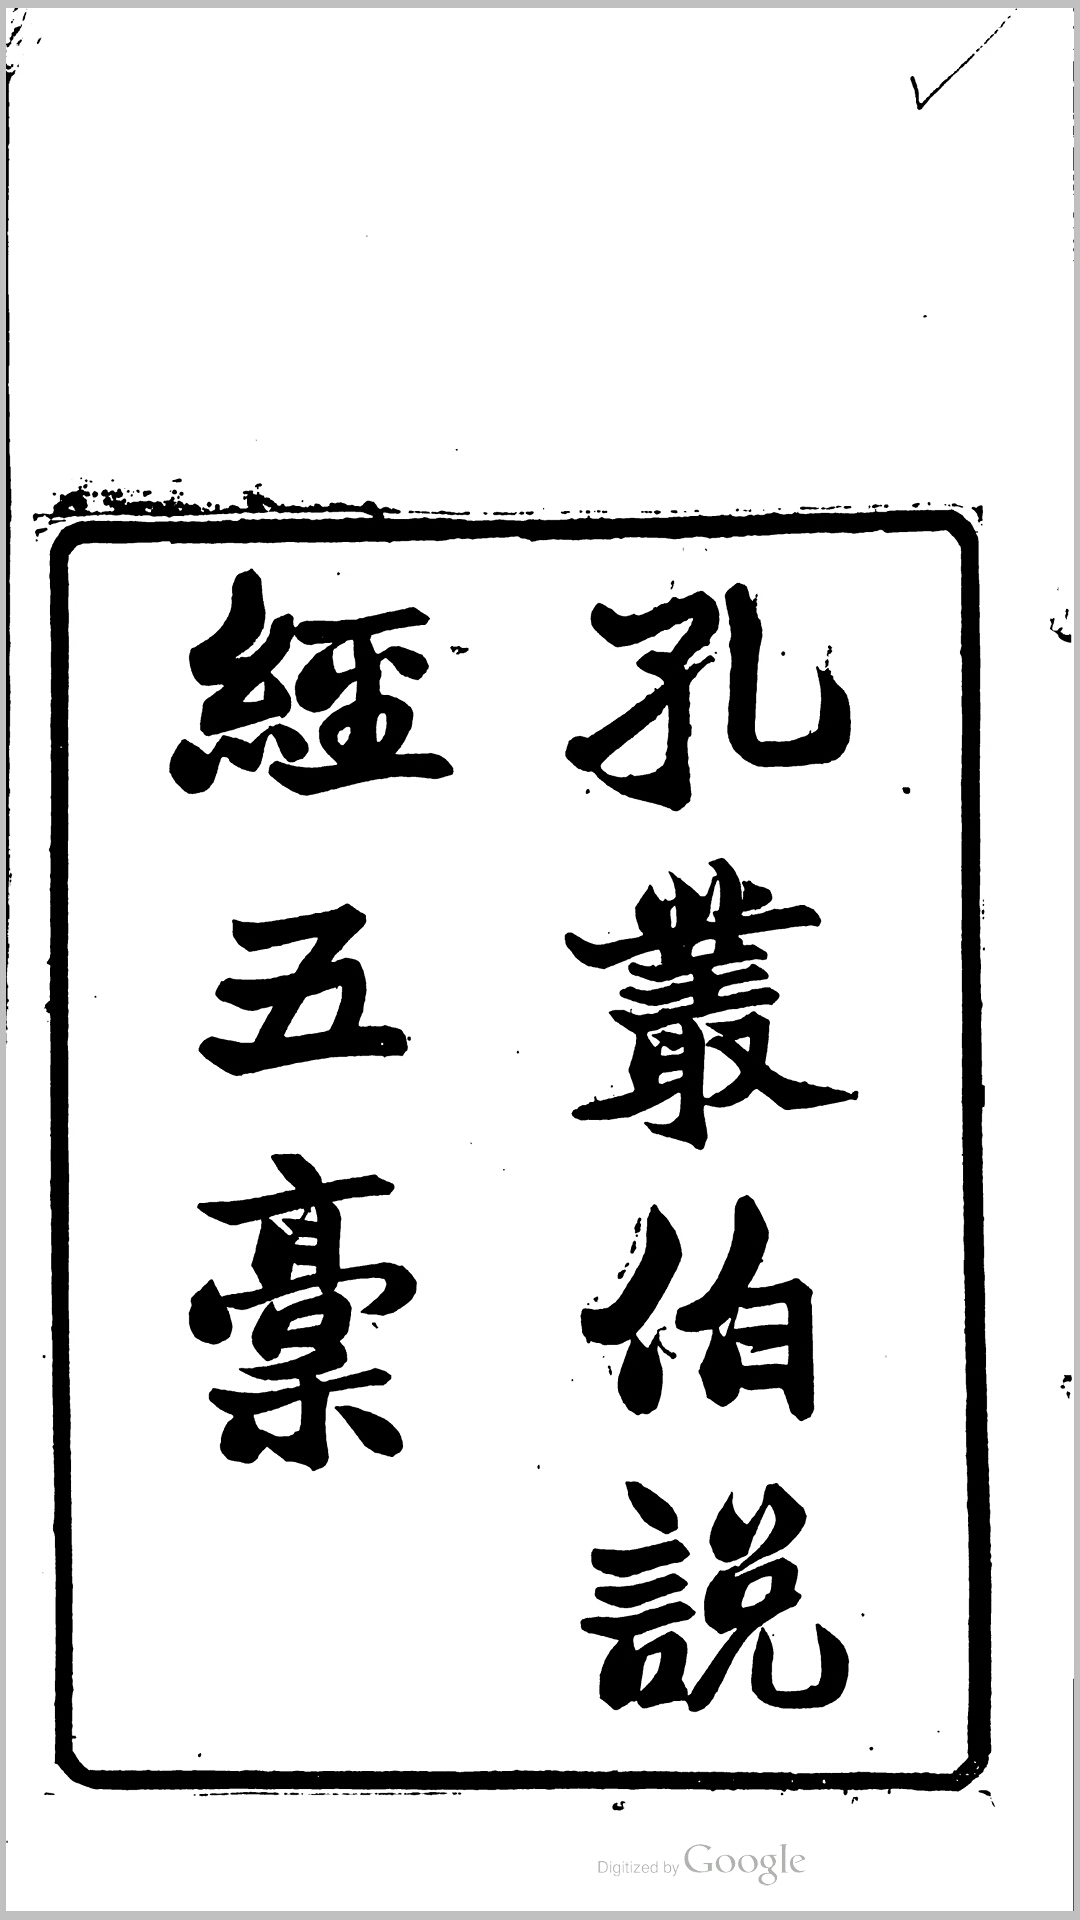 孔叢伯說
經五稾
Digitized by Google